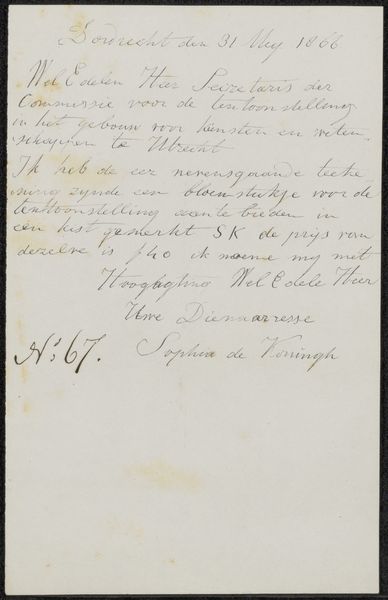 Dordrecht den 31 Mey 1866
Wel Edelen Heer Seizetaris der
Commissie voor de tentoonstelling
in het gebouw voor kunsten en weten
schappen te Utrecht
Ik heb de eer nevensgaande teeke
ning zynde een bloemstukje voor de
tentoonstelling aan te bieden in
een kist gemerkt SK de prijs van
dezelve is f 40 ik noeme my met
Hoogagting Wel Edele Heer
Uwe Dienaarresse
No 67. Sophia de Koningh